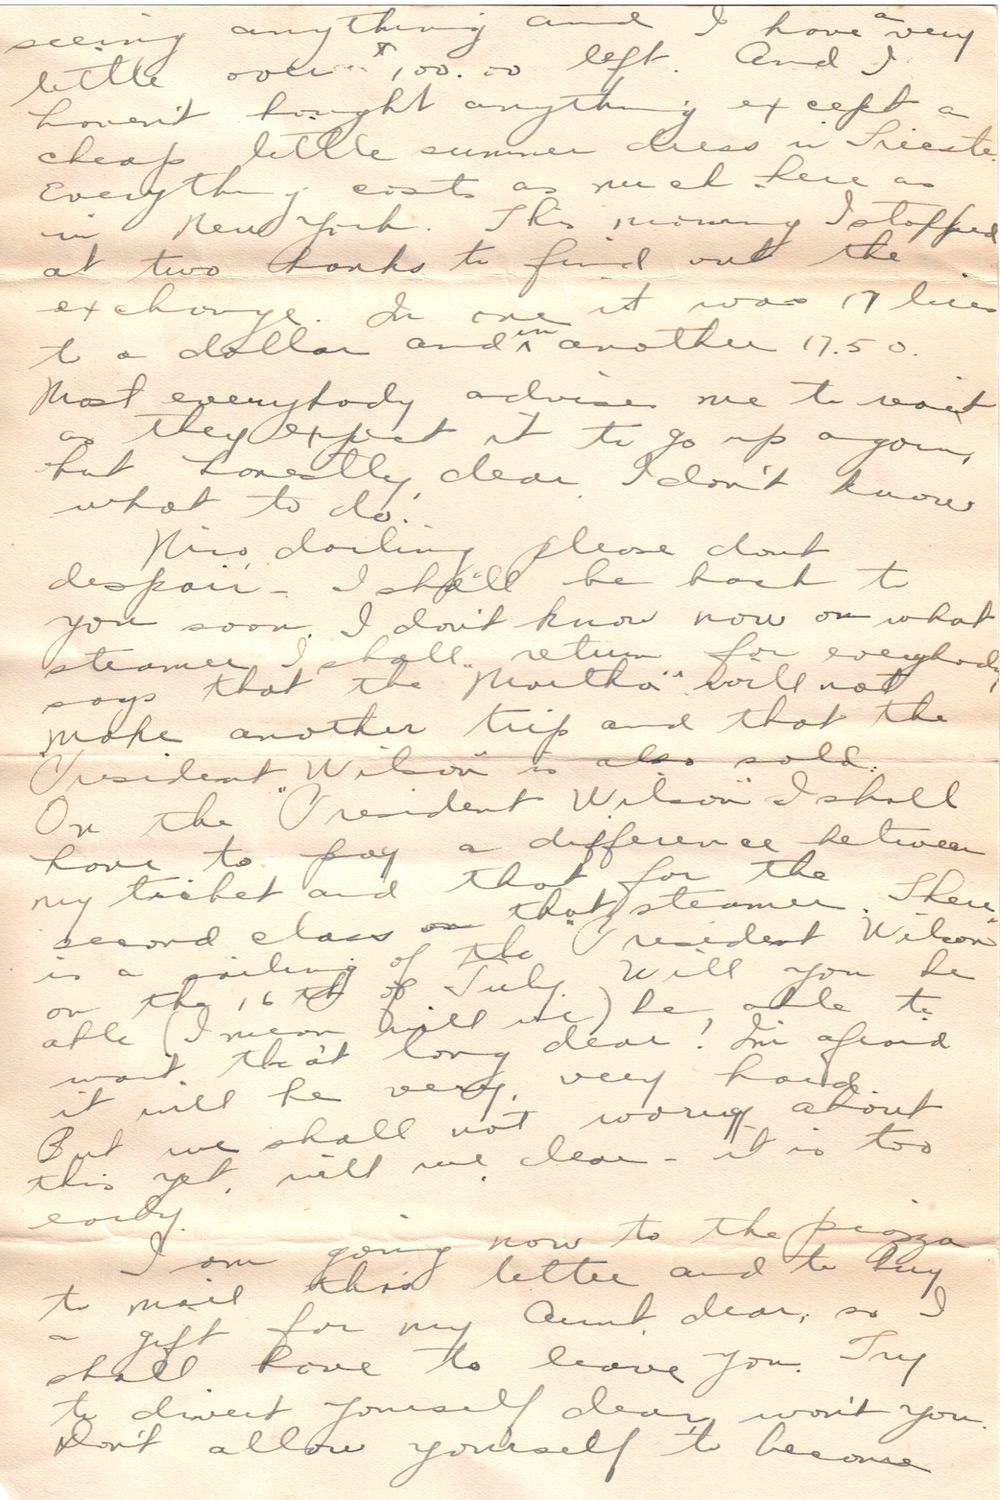 seeing anything and I have a very
little over $100.00 left. And I
haven't bought anything except a
cheap little summer dress in Trieste.
Everything costs as much here as
in New York. This morning I stopped
at two banks to find out the
exchange. In one it was 17 lire
to a dollar and in another 17.50.
Most everybody advises me to wait
as they expect it to go up again,
but honestly, dear, I don't know
what to do.
Nino, darling please don't
despair - I shall be back to
you soon. I don't know now on what
steamer I shall return for everybody
says that the "Martha" will not
make another trip and that the
"President Wilson" is also sold.
On the "President Wilson" I shall
have to pay a difference between
my ticket and that for the
second class on that steamer. There
is a sailing of the "President Wilson"
on the 16th of July. Will you be
able (I mean will we) be able to
wait that long dear! I'm afraid
it will be very, very hard.
But we shall not worry about
this yet, will we, dear - it is too
early.
I am going now to the piazza
to mail this letter and to buy
a gift for my Aunt dear, so I
shall have to leave you. Try
to divert yourself dear, won't you.
Don't allow yourself to become